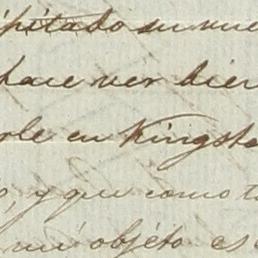 ipitado su vue
hace ver bien
rle en Kingsto
o, y que como t
mi objéto es